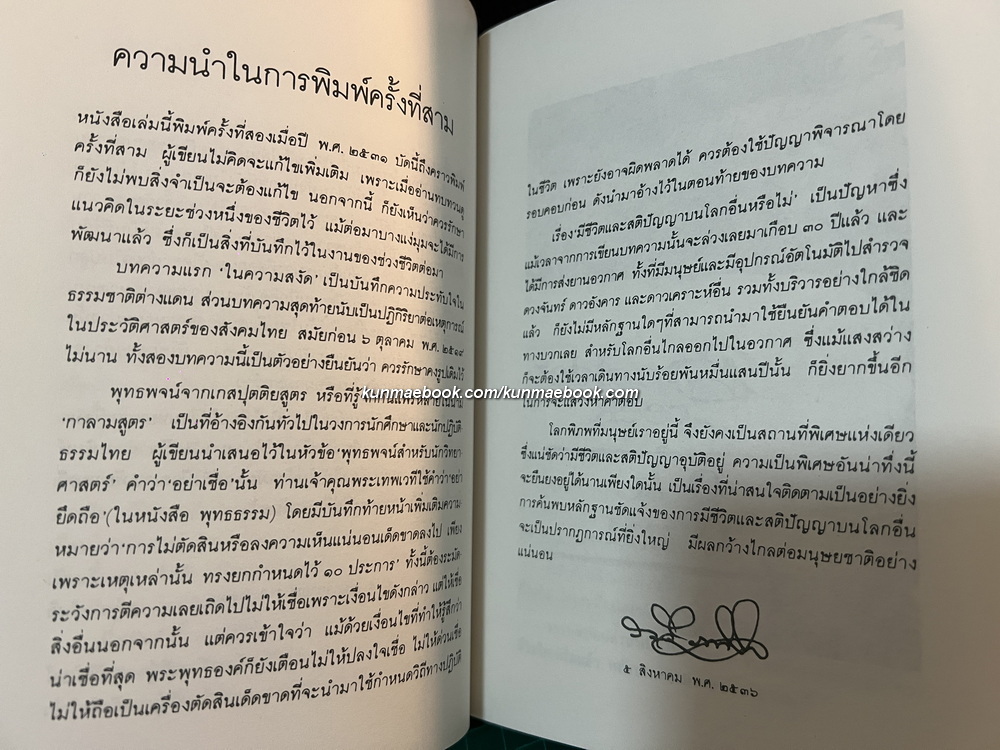 ความนำในการพิมพ์ครั้งที่สาม
หนังสือเล่มนี้พิมพ์ครั้งที่สองเมื่อปี พ.ศ. ๒๕๓๑ บัดนี้ถึงคราวพิมพ์
ครั้งที่สาม ผู้เขียนไม่คิดจะแก้ไขเพิ่มเติม เพราะเมื่ออ่านทบทวนดู
ก็ยังไม่พบสิ่งจำเป็นจะต้องแก้ไข นอกจากนี้ ก็ยังเห็นว่าควรรักษา
แนวคิดในระยะช่วงหนึ่งของชีวิตไว้ แม้ต่อมาบางแง่มุมจะได้มีการ
พัฒนาแล้ว ซึ่งก็เป็นสิ่งที่บันทึกไว้ในงานของช่วงชีวิตต่อมา
บทความแรก 'ในความสงัด' เป็นบันทึกความประทับใจใน
ธรรมชาติต่างแดน ส่วนบทความสุดท้ายนับเป็นปฏิกิริยาต่อเหตุการณ์
ในประวัติศาสตร์ของสังคมไทย สมัยก่อน ๖ ตุลาคม พ.ศ. ๒๕๑๙
ไม่นาน ทั้งสองบทความนี้เป็นตัวอย่างยืนยันว่า ควรรักษาคงรูปเดิมไว้
พุทธพจน์จากเกสปุตติยสูตร หรือที่รู้จักกันแพร่หลายในนาม
'กาลามสูตร' เป็นที่อ้างอิงกันทั่วไปในวงการนักศึกษาและนักปฏิบัติ-
ธรรมไทย ผู้เขียนนำเสนอไว้ในหัวข้อ 'พุทธพจน์สำหรับนักวิทยา-
ศาสตร์' คำว่า 'อย่าเชื่อ' นั้น ท่านเจ้าคุณพระเทพเวทีใช้คำว่า 'อย่า
ยึดถือ' (ในหนังสือ พุทธธรรม) โดยมีบันทึกท้ายหน้าเพิ่มเติมความ
หมายว่า 'การไม่ตัดสินหรือลงความเห็นแน่นอนเด็ดขาดลงไป เพียง
เพราะเหตุเหล่านั้น ทรงยกกำหนดไว้ ๑๐ ประการ' ทั้งนี้ต้องระมัด-
ระวังการตีความเลยเถิดไปไม่ให้เชื่อเพราะเงื่อนไขดังกล่าว แต่ให้เชื่อ
สิ่งอื่นนอกจากนั้น แต่ควรเข้าใจว่า แม้ด้วยเงื่อนไขที่ทำให้รู้สึกว่า
น่าเชื่อที่สุด พระพุทธองค์ก็ยังเตือนไม่ให้ปลงใจเชื่อ ไม่ให้ด่วนเชื่อ
ไม่ให้ถือเป็นเครื่องตัดสินเด็ดขาดที่จะนำมาใช้กำหนดวิถีทางปฏิบัติ
kunmaebook.com/kunmaebook.com
ในชีวิต เพราะยังอาจผิดพลาดได้ ควรต้องใช้ปัญญาพิจารณาโดย
รอบคอบก่อน ดังนำมาอ้างไว้ในตอนท้ายของบทความ
เรื่อง 'มีชีวิตและสติปัญญาบนโลกอื่นหรือไม่' เป็นปัญหาซึ่ง
แม้เวลาจากการเขียนบทความนั้นจะล่วงเลยมาเกือบ ๓๐ ปีแล้ว และ
ได้มีการส่งยานอวกาศ ทั้งที่มีมนุษย์และมีอุปกรณ์อัตโนมัติไปสำรวจ
ดวงจันทร์ ดาวอังคาร และดาวเคราะห์อื่น รวมทั้งบริวารอย่างใกล้ชิด
แล้ว ก็ยังไม่มีหลักฐานใดๆที่สามารถนำมาใช้ยืนยันคำตอบได้ใน
ทางบวกเลย สำหรับโลกอื่นไกลออกไปในอวกาศ ซึ่งแม้แสงสว่าง
ก็จะต้องใช้เวลาเดินทางนับร้อยพันหมื่นแสนปีนั้น ก็ยิ่งยากขึ้นอีก
ในการจะแสวงหาคำตอบ
โลกพิภพที่มนุษย์เราอยู่นี้ จึงยังคงเป็นสถานที่พิเศษแห่งเดียว
ซึ่งแน่ชัดว่ามีชีวิตและสติปัญญาอุบัติอยู่ ความเป็นพิเศษอันน่าทึ่งนี้
จะยืนยงอยู่ได้นานเพียงใดนั้น เป็นเรื่องที่น่าสนใจติดตามเป็นอย่างยิ่ง
การค้นพบหลักฐานชัดแจ้งของการมีชีวิตและสติปัญญาบนโลกอื่น
จะเป็นปรากฏการณ์ที่ยิ่งใหญ่ มีผลกว้างไกลต่อมนุษยชาติอย่าง
แน่นอน
๕ สิงหาคม พ.ศ. ๒๕๓๖